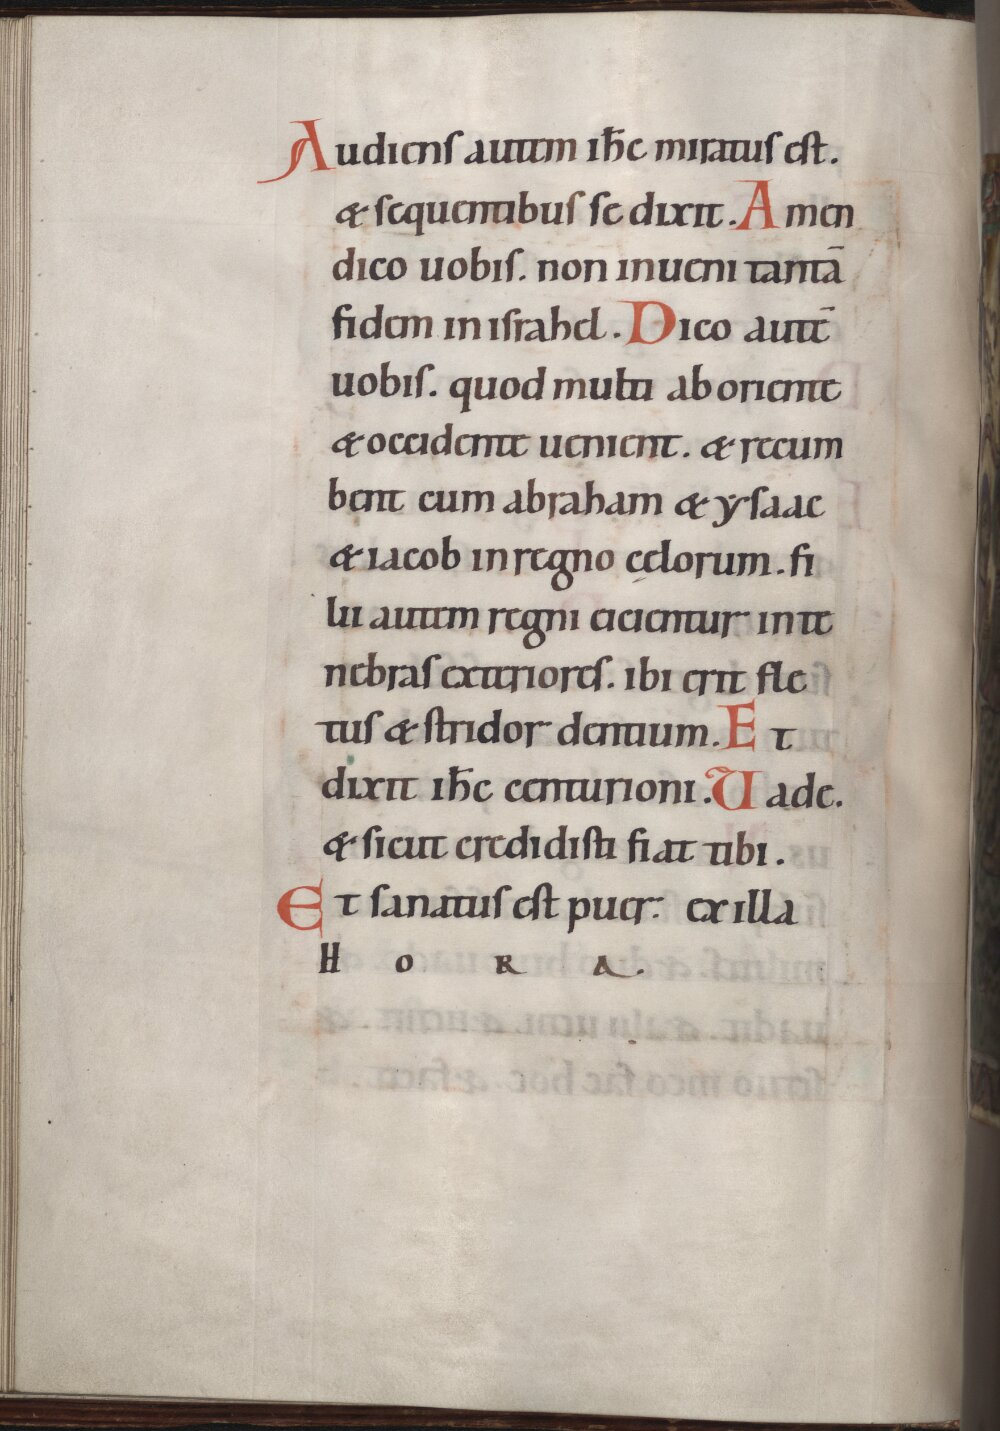 Audiens autem ih̄c miratus est.
& sequentibus se dixit. Amen
dico uobis. non inueni tantā
fidem in israhel. Dico autē
uobis. quod multi ab oriente
& occidente uenient. & recum
bent cum abraham & ẏsaac
& iacob in regno cęlorum. fi
lii autem regni eicientur in te
nebras exteriores. ibi erit fle
tus & stridor dentium. Et
dixit ih̄c centurioni. Uade.
& sicut credidisti fiat tibi.
Et sanatus est puer. ex illa
HORA.